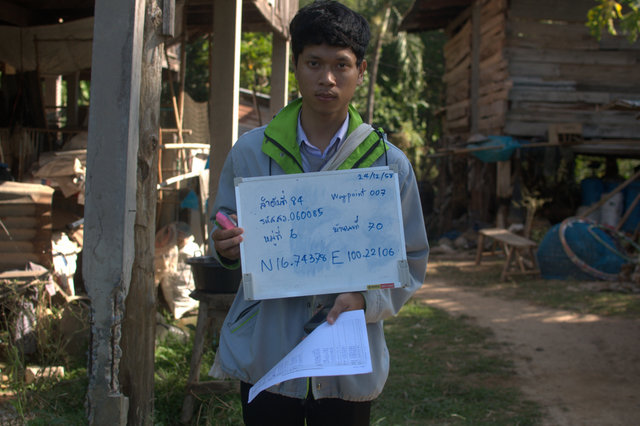 24/12/58
ลำดับที่ 94 Waypoint 007
รหัสสจ.060085
หมู่ที่ 6 บ้านเลขที่ 70
N16.74378 E 100.22106